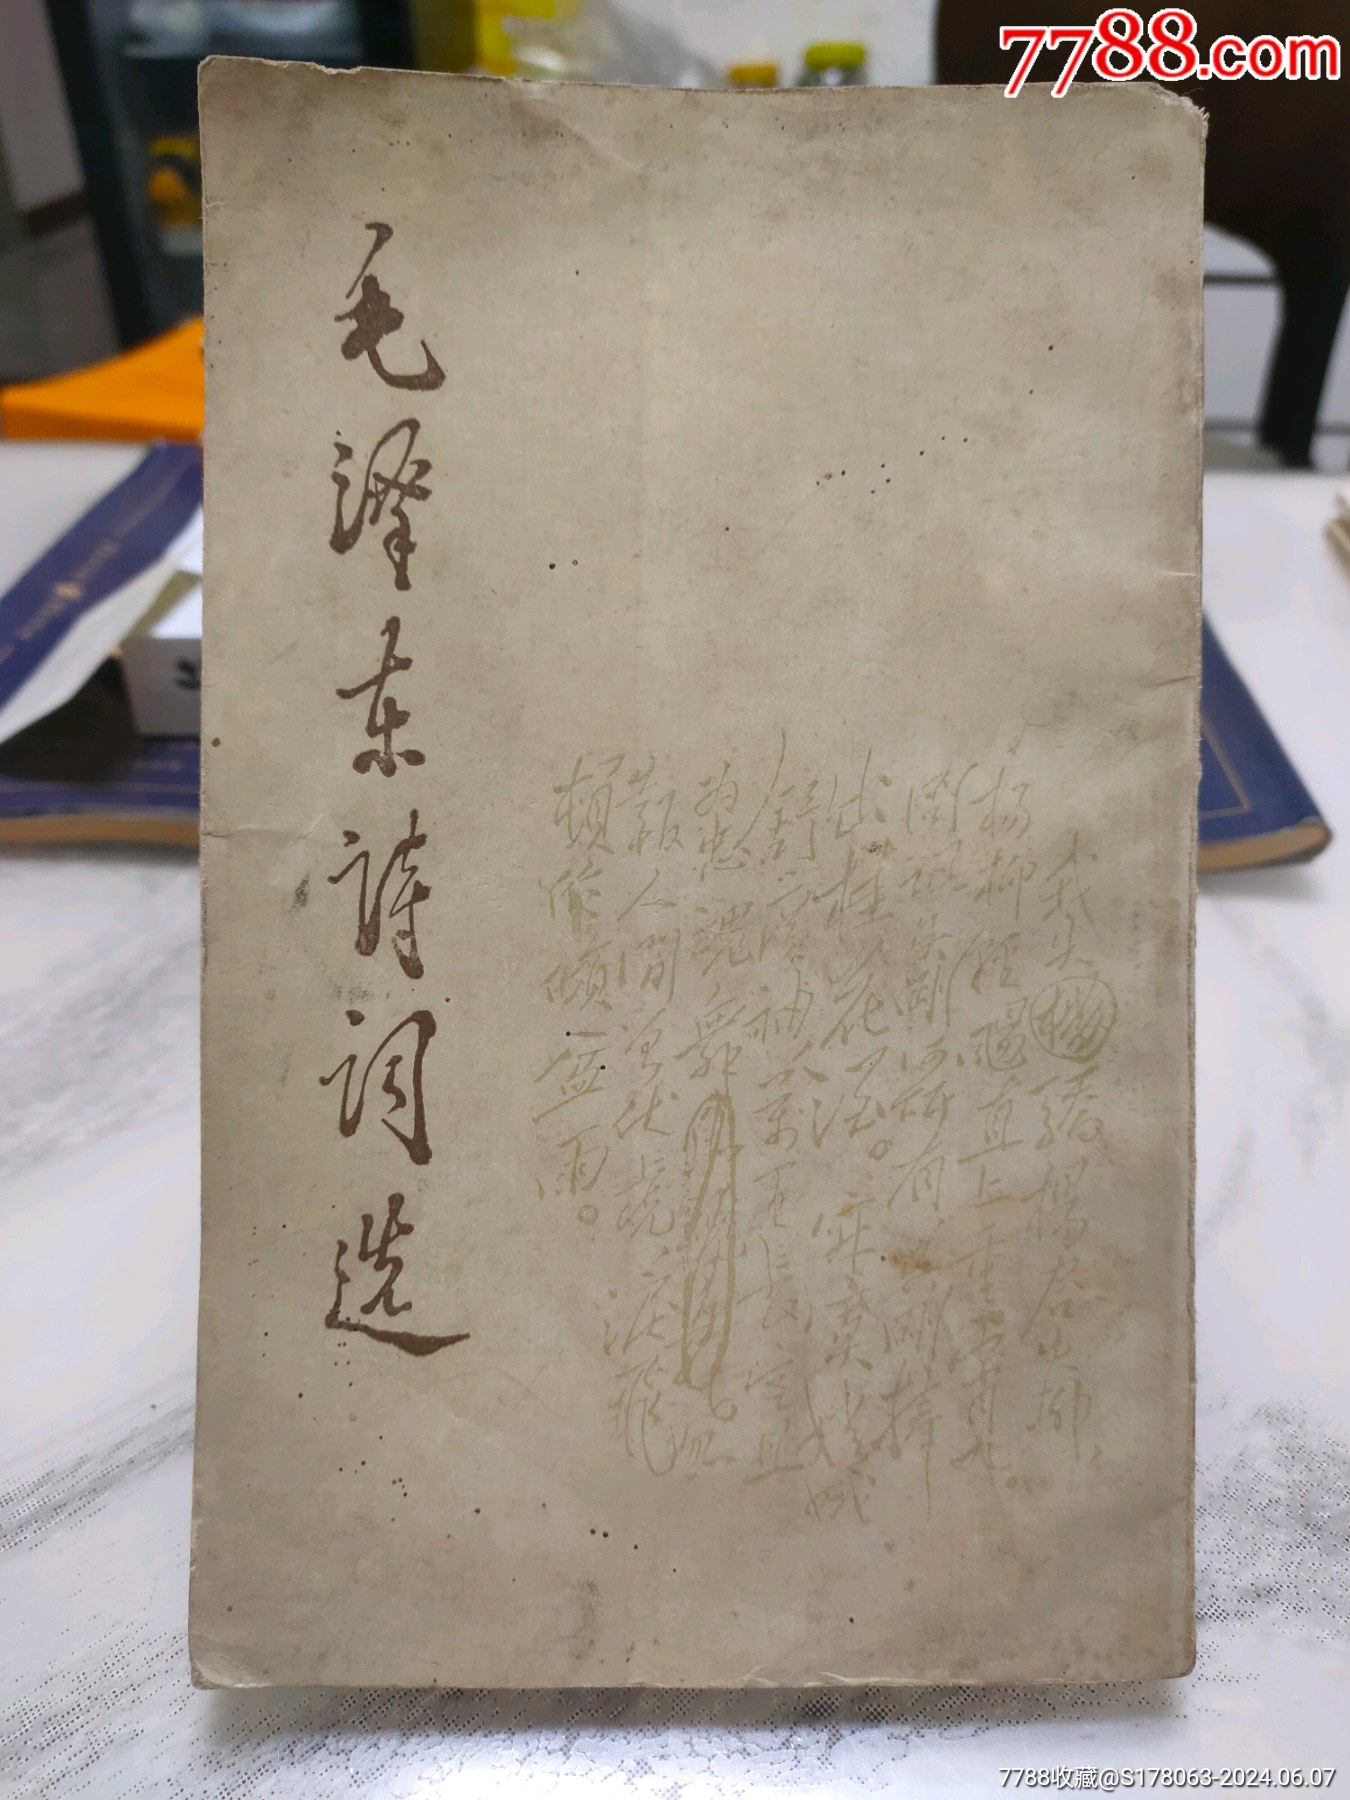 7788.com
毛泽东詩詞选
我失楊驕楊君失柳、
杨柳輕颺直上重霄九。
问訊吴剛何所有、吴剛捧
出桂花酒。寂寞嫦娥
舒廣袖、萬里長空且
為忠魂舞。忽
報人間曾伏虎、泪飛
頓作傾盆雨。
7788收藏@S178063-2024.06.07